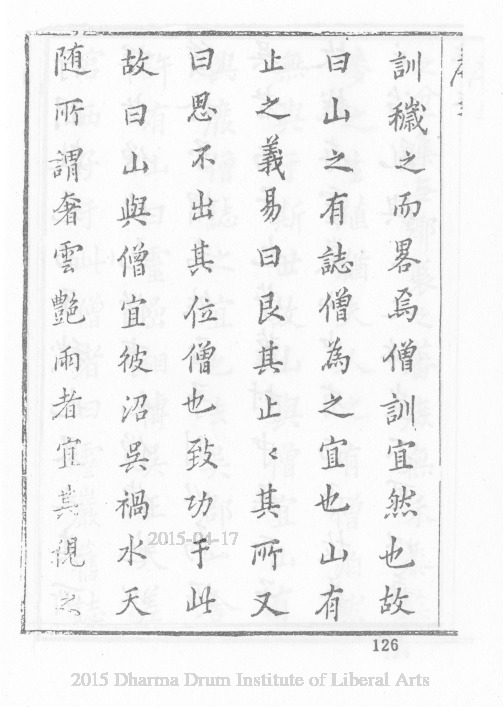 訓穢之而畧焉僧訓宜然也故
曰山之有誌僧為之宜也山有
止之義易曰艮其止〻其所又
曰思不出其位僧也致功于此
故曰山與僧宜彼沼吳禍水天
隨所謂奢雲艷雨者宜其視之
2015-04-17
126
2015 Dharma Drum Institute of Liberal Arts